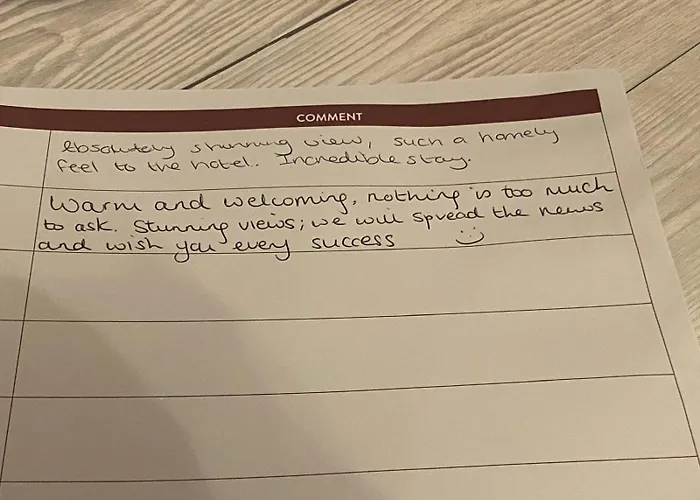 COMMENT
Absolutely stunning view, such a homely
feel to the hotel. Incredible stay.
Warm and welcoming, nothing is too much
to ask. Stunning views; we will spread the news
and wish you every success